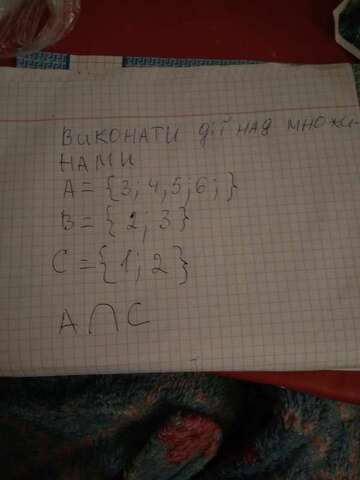 ВИКОНАТИ дії НАД МНОЖИ-
НАМИ
A = {3; 4, 5; 6; }
B = { 2; 3}
C = {1; 2 }
A ∩ C